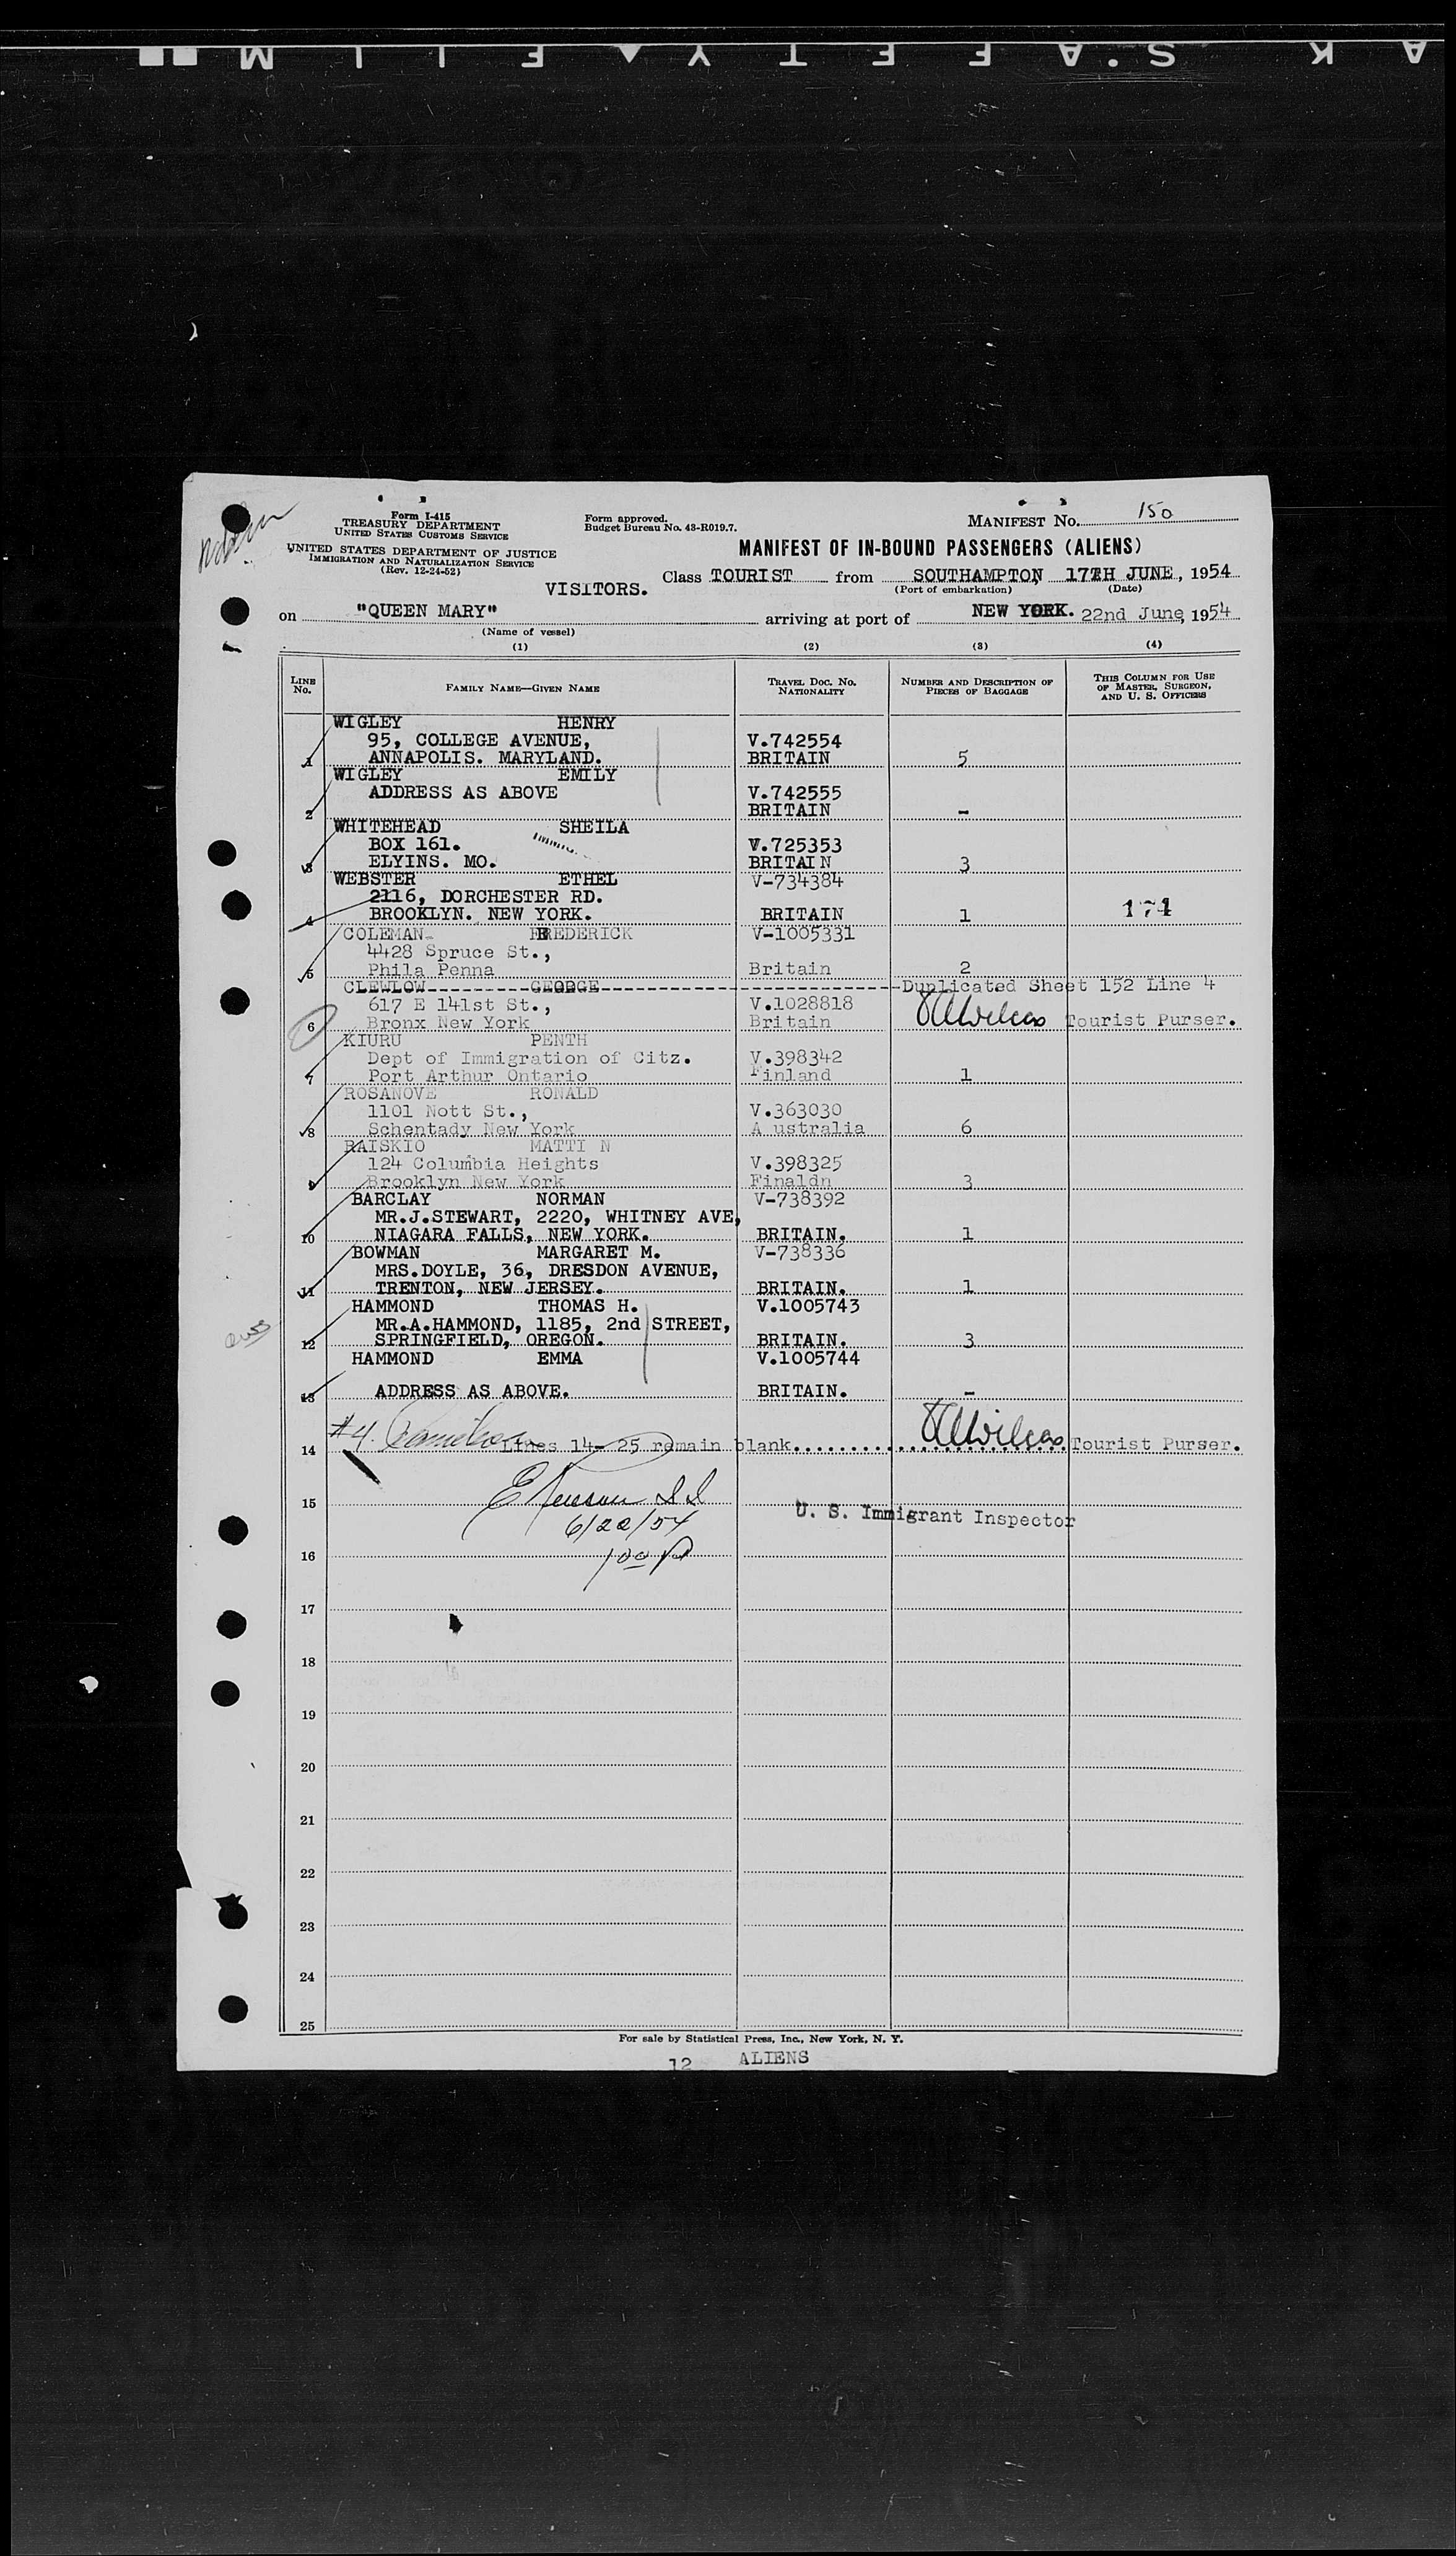 Form I-415
TREASURY DEPARTMENT
UNITED STATES CUSTOMS SERVICE
UNITED STATES DEPARTMENT OF JUSTICE
IMMIGRATION AND NATURALIZATION SERVICE
(Rev. 12-24-52)
Form approved.
Budget Bureau No. 43-R019.7.
MANIFEST No. 150
MANIFEST OF IN-BOUND PASSENGERS (ALIENS)
VISITORS.
Class TOURIST from SOUTHAMPTON, 17TH JUNE, 1954
(Port of embarkation) (Date)
on "QUEEN MARY" arriving at port of NEW YORK. 22nd June, 1954
(Name of vessel)
(1) (2) (3) (4)
LINE No. FAMILY NAME—GIVEN NAME TRAVEL DOC. NO. NATIONALITY NUMBER AND DESCRIPTION OF PIECES OF BAGGAGE THIS COLUMN FOR USE OF MASTER, SURGEON, AND U. S. OFFICERS
WIGLEY HENRY
95, COLLEGE AVENUE, V.742554
1 ANNAPOLIS. MARYLAND. BRITAIN 5
WIGLEY EMILY
ADDRESS AS ABOVE V.742555
2 BRITAIN -
WHITEHEAD SHEILA
BOX 161. V.725353
3 ELYINS. MO. BRITAIN 3
WEBSTER ETHEL V-734384
2116, DORCHESTER RD.
4 BROOKLYN. NEW YORK. BRITAIN 1 174
COLEMAN FREDERICK V-1005331
4428 Spruce St.,
5 Phila Penna Britain 2
CLEWLOW GEORGE Duplicated Sheet 152 Line 4
617 E 141st St., V.1028818
6 Bronx New York Britain Tourist Purser.
KIURU PENTH
Dept of Immigration of Citz. V.398342
7 Port Arthur Ontario Finland 1
ROSANOVE RONALD
1101 Nott St., V.363030
8 Schentady New York A ustralia 6
RAISKIO MATTI N
124 Columbia Heights V.398325
9 Brooklyn New York Finaldn 3
BARCLAY NORMAN V-738392
MR.J.STEWART, 2220, WHITNEY AVE,
10 NIAGARA FALLS, NEW YORK. BRITAIN. 1
BOWMAN MARGARET M. V-738336
MRS.DOYLE, 36, DRESDON AVENUE,
11 TRENTON, NEW JERSEY. BRITAIN. 1
HAMMOND THOMAS H. V.1005743
MR.A.HAMMOND, 1185, 2nd STREET,
12 SPRINGFIELD, OREGON. BRITAIN. 3
HAMMOND EMMA V.1005744
13 ADDRESS AS ABOVE. BRITAIN. -
#4.
14 Lines 14- 25 remain blank.................... Tourist Purser.
15 U. S. Immigrant Inspector
6/22/54
16
17
18
19
20
21
22
23
24
25
For sale by Statistical Press, Inc., New York, N. Y.
12 ALIENS